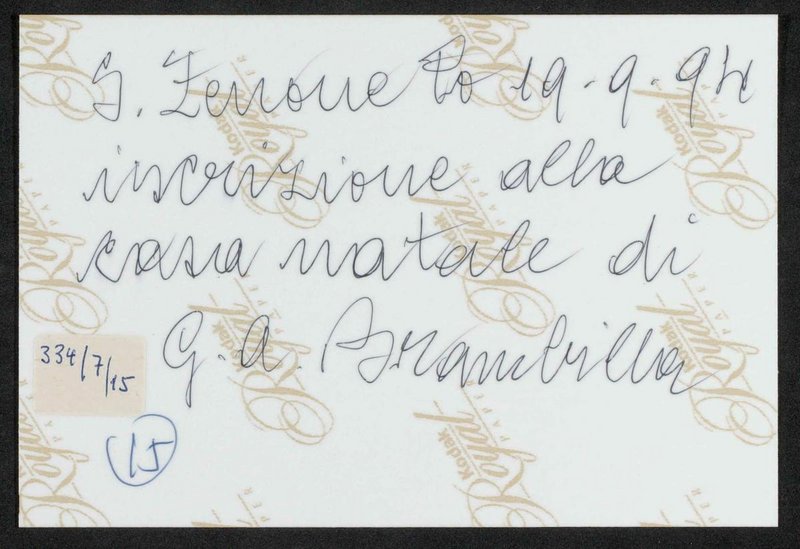 S. Zenone Po 19.9.94
iscrizione alla
casa natale di
G. A. Brambilla
334/7/15
15
Kodak
Royal
PAPER